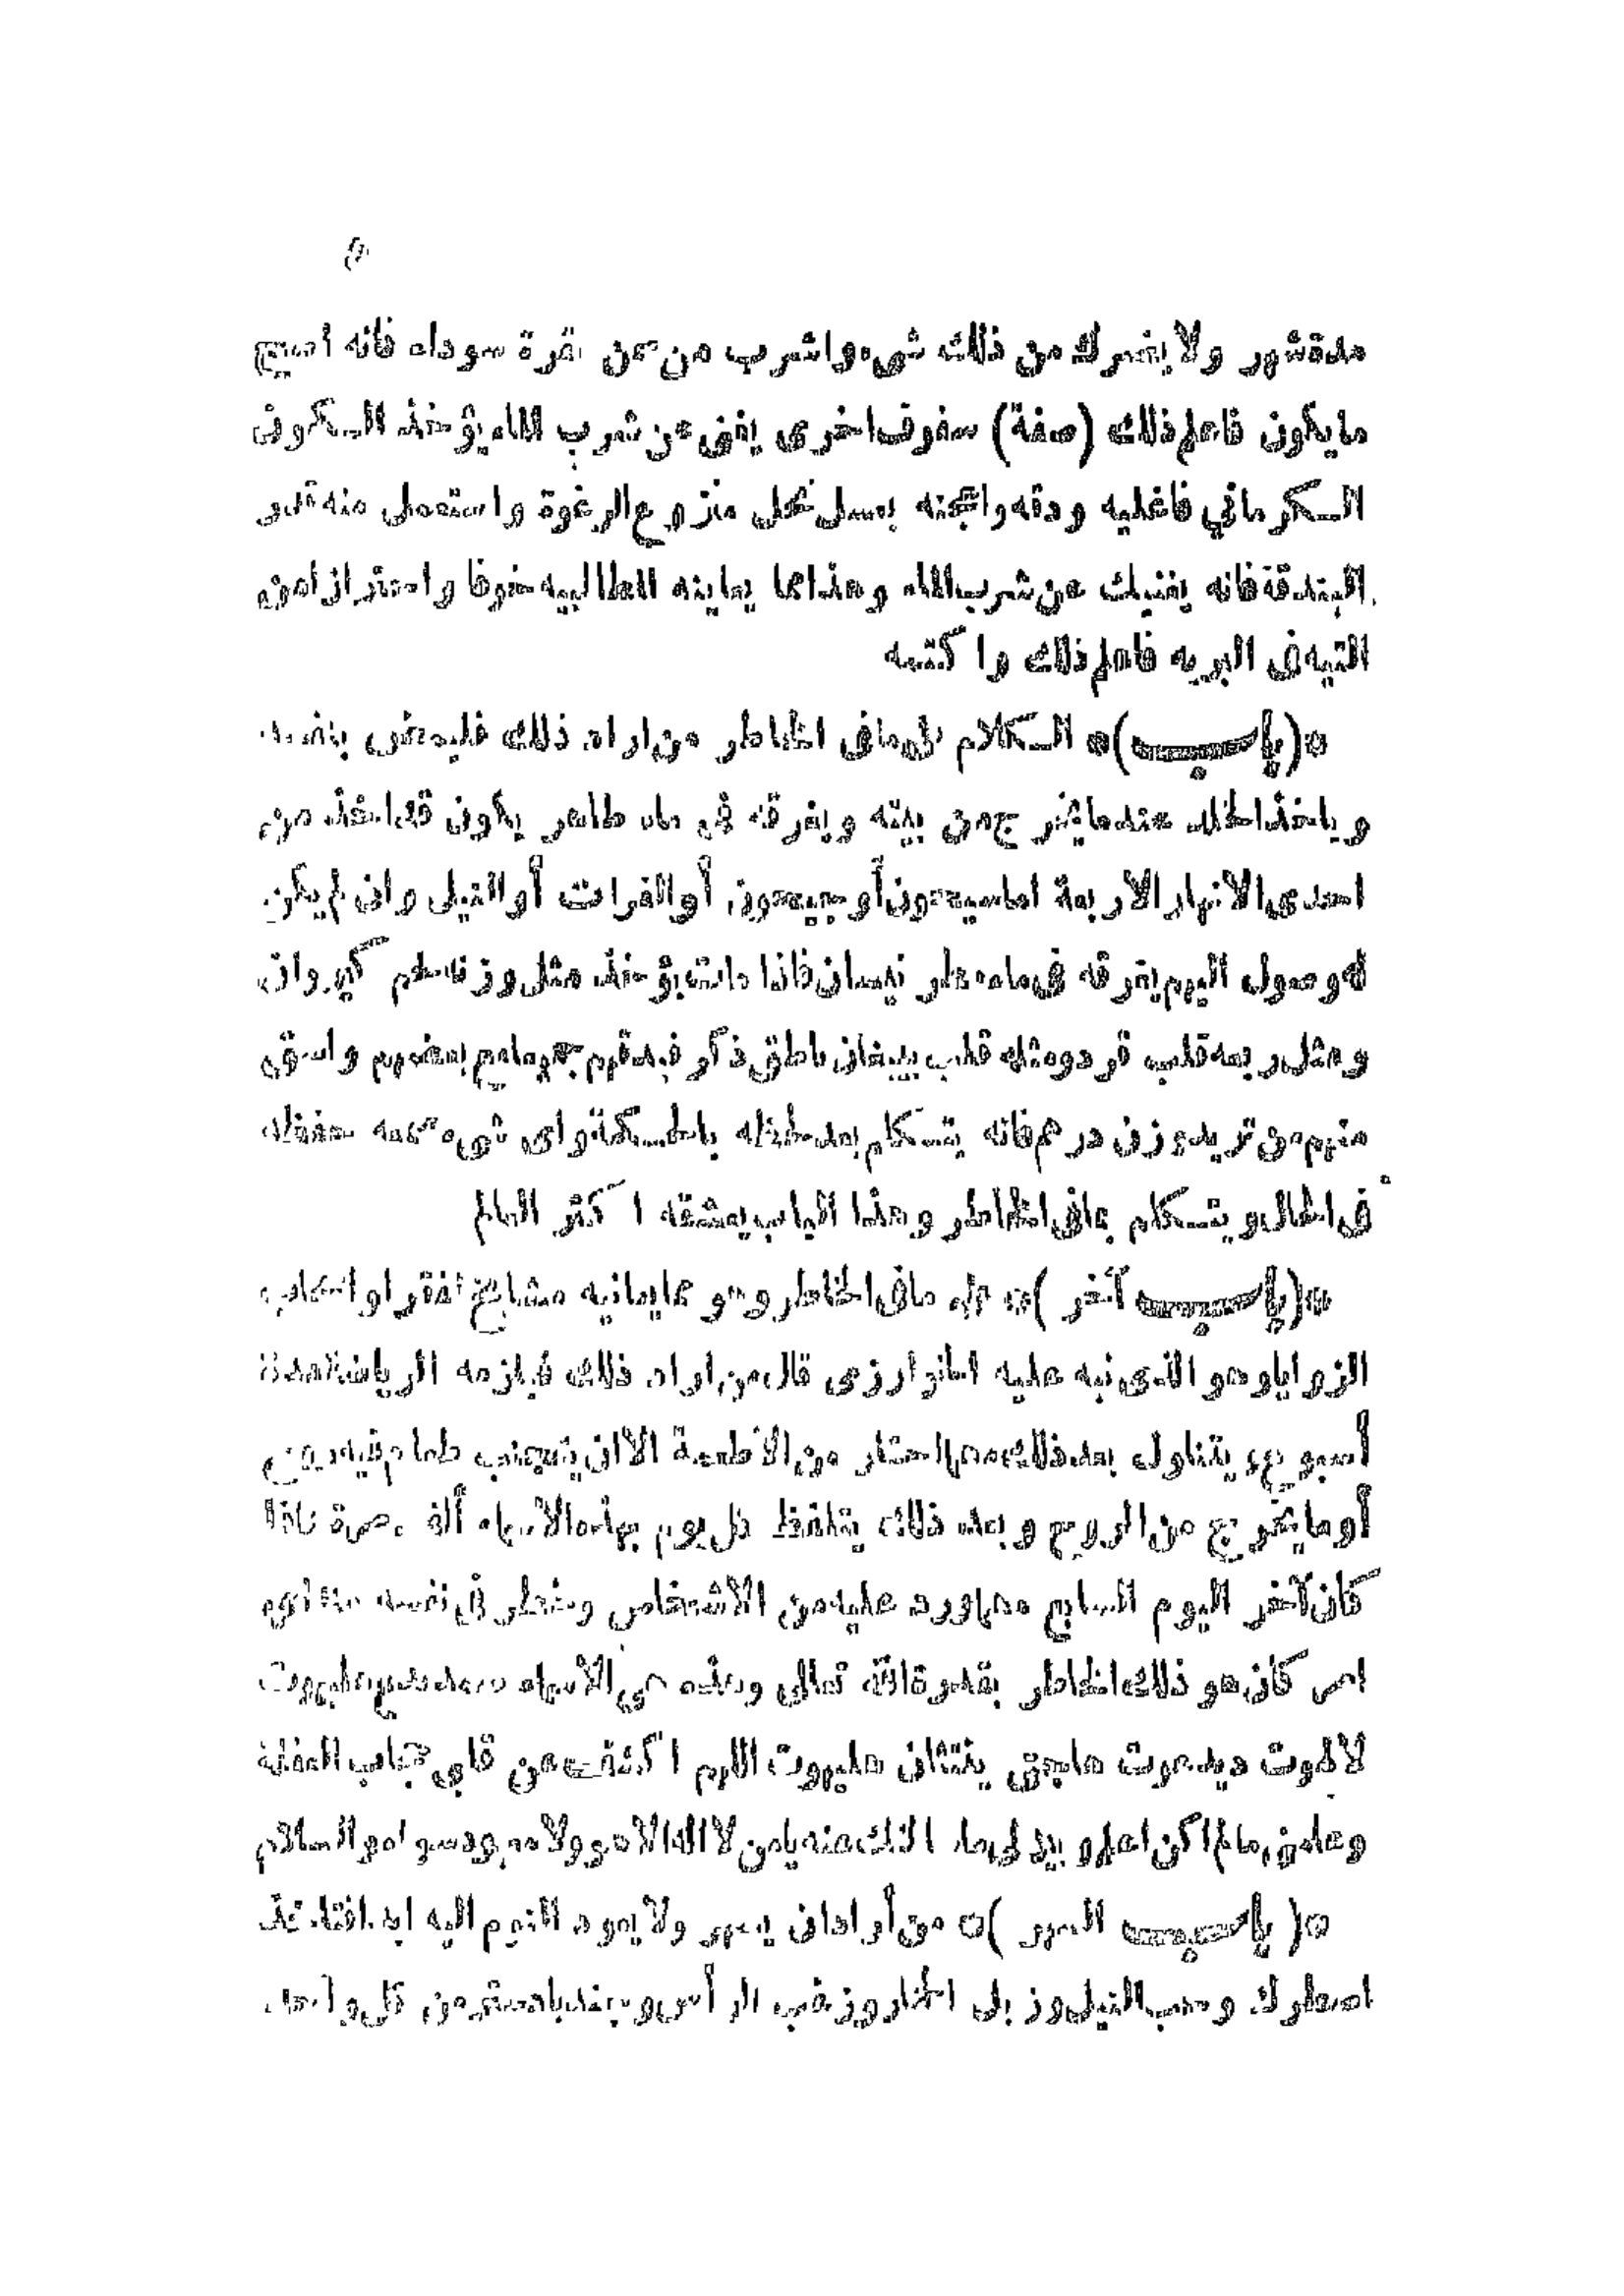 ٥
مدة شهر ولا يضرك من ذلك شيء واشرب من سمن بقرة سوداء فانه اصح
ما يكون فاعلم ذلك (صفة) سفوف اخرى يغنى عن شرب الماء يؤخذ الكمون
الكرماني فاغليه ودقه واعجنه بعسل نحل منزوع الرغوة واستعمل منه قدر
البندقة فانه يغنيك عن شرب الماء وهذا مما يعاينه المطالبيه خوفا واحترازا من
التيه فى البريه فاعلم ذلك واكتمه
*(باب)* الكلام على ما فى الخاطر من اراد ذلك فليمض بنفسه
وياخذ الخلد عندما يخرج من بيته ويغرقه فى ماء طاهر يكون قد اخذ من
احدى الانهار الاربعة اما سيحون أو جيحون أو الفرات أو النيل وان لم يكن
له وصول اليهم يغرقه فى ماء مطر نيسان فاذا مات يؤخذ مثل وزنه كبير وان
ومثل ربعه قلب قرد ومثله قلب ببغان ناطق ذكر فيدقهم جميعا مع بعضهم واسقى
منهم من تريد وزن درهم فانه يتكلم بعد لحظه بالحكمة واى شيء سمعه حفظه
فى الحال ويتكلم بما فى الخاطر وهذا الباب يعشقه اكثر العالم
*(باب آخر)* ما فى الخاطر وهو مما يعانيه مشايخ الفقر او اصحاب
الزوايا وهو الذى نبه عليه الخوارزمى قال من اراد ذلك فيلزمه الرياضة مدة
أسبوع يتناول بعد ذلك مهما اختار من الاطعمة الا ان يتجنب طعام فيه روح
أو ما يخرج من الروح وبعد ذلك يتلفظ كل يوم بهذه الاسماء ألف مرة فاذا
كان آخر اليوم السابع مهما ورد عليه من الاشخاص وخطر فى نفسه
كان هو ذلك الخاطر بقدرة الله تعالى وهذه هي الاسماء
اللهم اكشف عن قلبي حجاب الغفلة
وعلمنى ما لم اكن اعلم يا من لا اله الا هو ولا معبود سواه والسلام
*(باب السهر)* من أراد ان يسهر ولا يعود النوم اليه ابدا فليأخذ
اصطرك وحب النيل وزبل الرأس من كل واحد